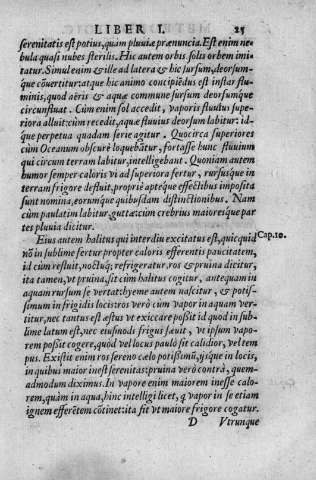 LIBER I. 25
serenitatis est potius, quam pluuiæ prænuncia. Est enim ne-
bula quasi nubes sterilis. Hic autem orbis solis orbem imi-
tatur. Simul enim & ille ad latera & hic sursum, deorsum-
que cōuertitur: atque hic animo concipiēdus est instar flu-
minis, quod aëris & aquæ commune sursum deorsumque
circunfluat. Cùm enim sol accedit, vaporis fluuius supe-
riora alluit: cùm recedit, aquæ fluuius deorsum labitur: id-
que perpetua quadam serie agitur. Quocirca superiores
cùm Oceanum obscurè loquebātur, fortasse hunc fluuium
qui circum terram labitur, intelligebant. Quoniam autem
humor semper caloris vi ad superiora fertur, rursusque in
terram frigore defluit, propriè aptéque effectibus imposita
sunt nomina, eorumque quibusdam distinctionibus. Nam
cùm paulatim labitur, guttæ: cùm crebrius maioreique par-
tes pluuia dicitur.
Eius autem halitus qui interdiu excitatus est, quicquid Cap. 10.
nō in sublime fertur propter caloris efferentis paucitatem,
id cùm resluit, noctuq; refrigeratur, ros & pruina dicitur,
ita tamen, vt pruina, sit: cùm halitus cogitur, antequam in
aquam rursum se vertat: hyeme autem nascitur, & potis-
simum in frigidis locis: ros verò cùm vapor in aquam ver-
titur, nec tantus est æstus vt exiccare possit id quod in sub-
lime latum est, nec eiusmodi frigus sæuit, vt ipsum vapo-
rem possit cogere, quòd vel locus paulò sit calidior, vel tem
pus. Existit enim ros sereno cælo potissimū, ijsque in locis,
in quibus maior inest serenitas: pruina verò contrà, quem-
admodum diximus. In vapore enim maiorem inesse calo-
rem, quàm in aqua, hinc intelligi licet, q vapor in se etiam
ignem efferētem cōtinet: ita fit vt maiore frigore cogatur.
D Vtrunque